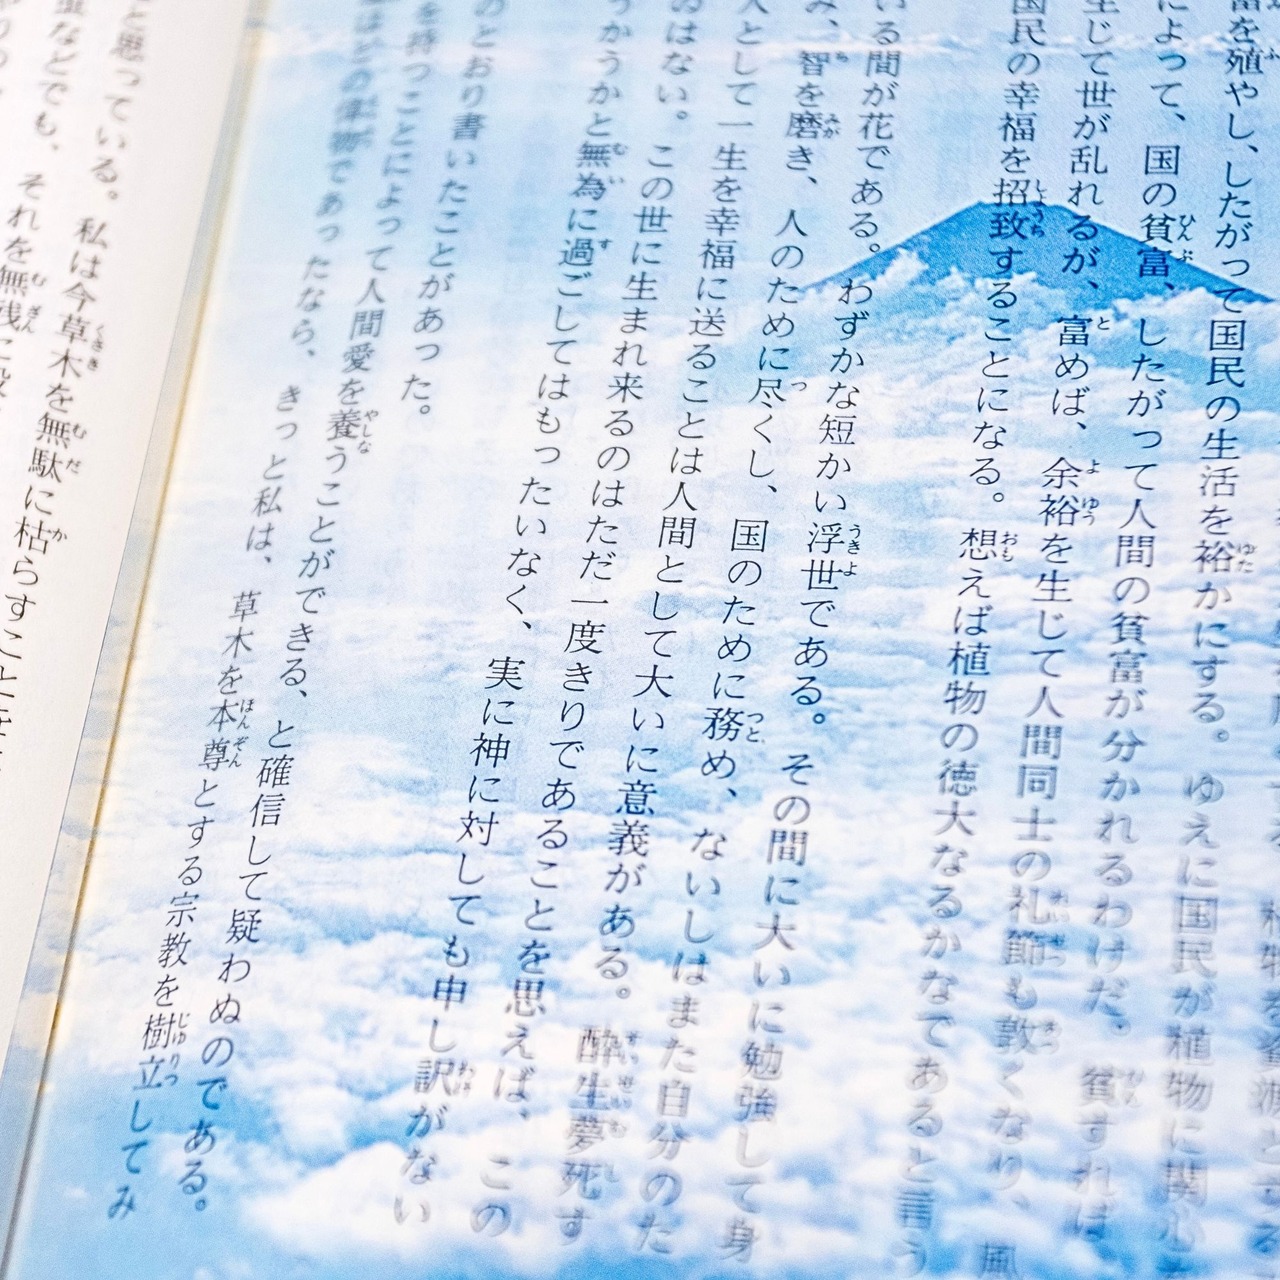 富を殖やし、したがって国民の生活を裕かにする。ゆえに国民が植物に関心
によって、国の貧富、したがって人間の貧富が分かれるわけだ。貧すれば
生じて世が乱れるが、富めば、余裕を生じて人間同士の礼節も敦くなり、風
国民の幸福を招致することになる。想えば植物の徳大なるかなであると言う
いる間が花である。わずかな短かい浮世である。その間に大いに勉強して身
み、智を磨き、人のために尽くし、国のために務め、ないしはまた自分のた
人として一生を幸福に送ることは人間として大いに意義がある。酔生夢死す
はない。この世に生まれ来るのはただ一度きりであることを思えば、この
うかうかと無為に過ごしてはもったいなく、実に神に対しても申し訳がない
のとおり書いたことがあった。
を持つことによって人間愛を養うことができる、と確信して疑わぬのである。
ほどの偉物であったなら、きっと私は、草木を本尊とする宗教を樹立してみ
と思っている。私は今草木を無駄に枯らすこと
などでも、それを無残に